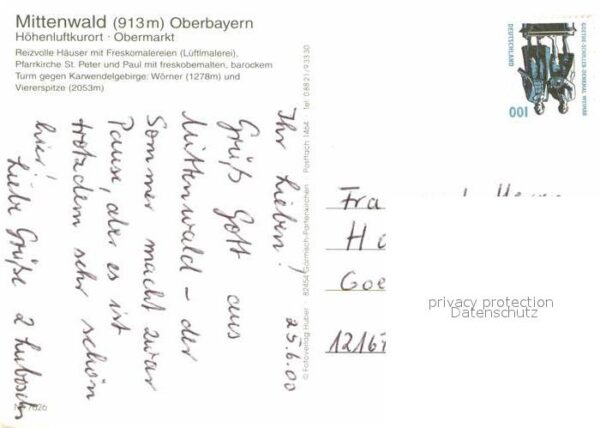 Mittenwald (913m) Oberbayern
Höhenluftkurort · Obermarkt
Reizvolle Häuser mit Freskomalereien (Lüftlmalerei),
Pfarrkirche St. Peter und Paul mit freskobemalten, barockem
Turm gegen Karwendelgebirge: Wörner (1278m) und
Viererspitze (2053m)
25.6.00
Ihr Lieben!
Grüß Gott aus
Mittenwald – der
Sommer macht zwar
Pause, aber es ist
trotzdem sehr schön
hier!
Liebe Grüße 2 Lubosch
Nr. 7626
© Fotoverlag Huber 82454 Garmisch-Partenkirchen Postfach 1464 Tel. 08821/93330
GOETHE-SCHILLER-DENKMAL WEIMAR
DEUTSCHLAND
100
Fra
H
Goe
12167
privacy protection
Datenschutz